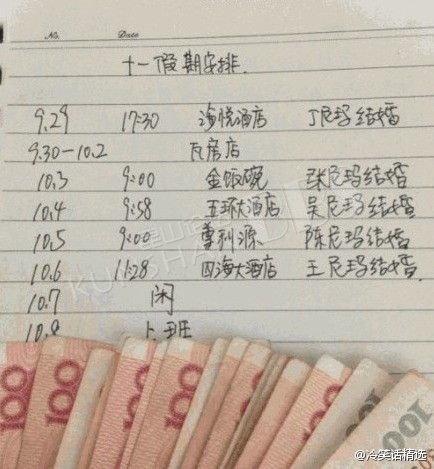 No. Date
十一假期安排.
9.29 17:30 海悦酒店 丁尼玛结婚
9.30-10.2 瓦房店
10.3 9:00 金饭碗 张尼玛结婚
10.4 9:58 五环大酒店 吴尼玛结婚
10.5 9:00 尊利源 陈尼玛结婚
10.6 11:28 四海大酒店 王尼玛结婚
10.7 闲
10.8 上班
100 100 100 100 100
@冷笑话精选